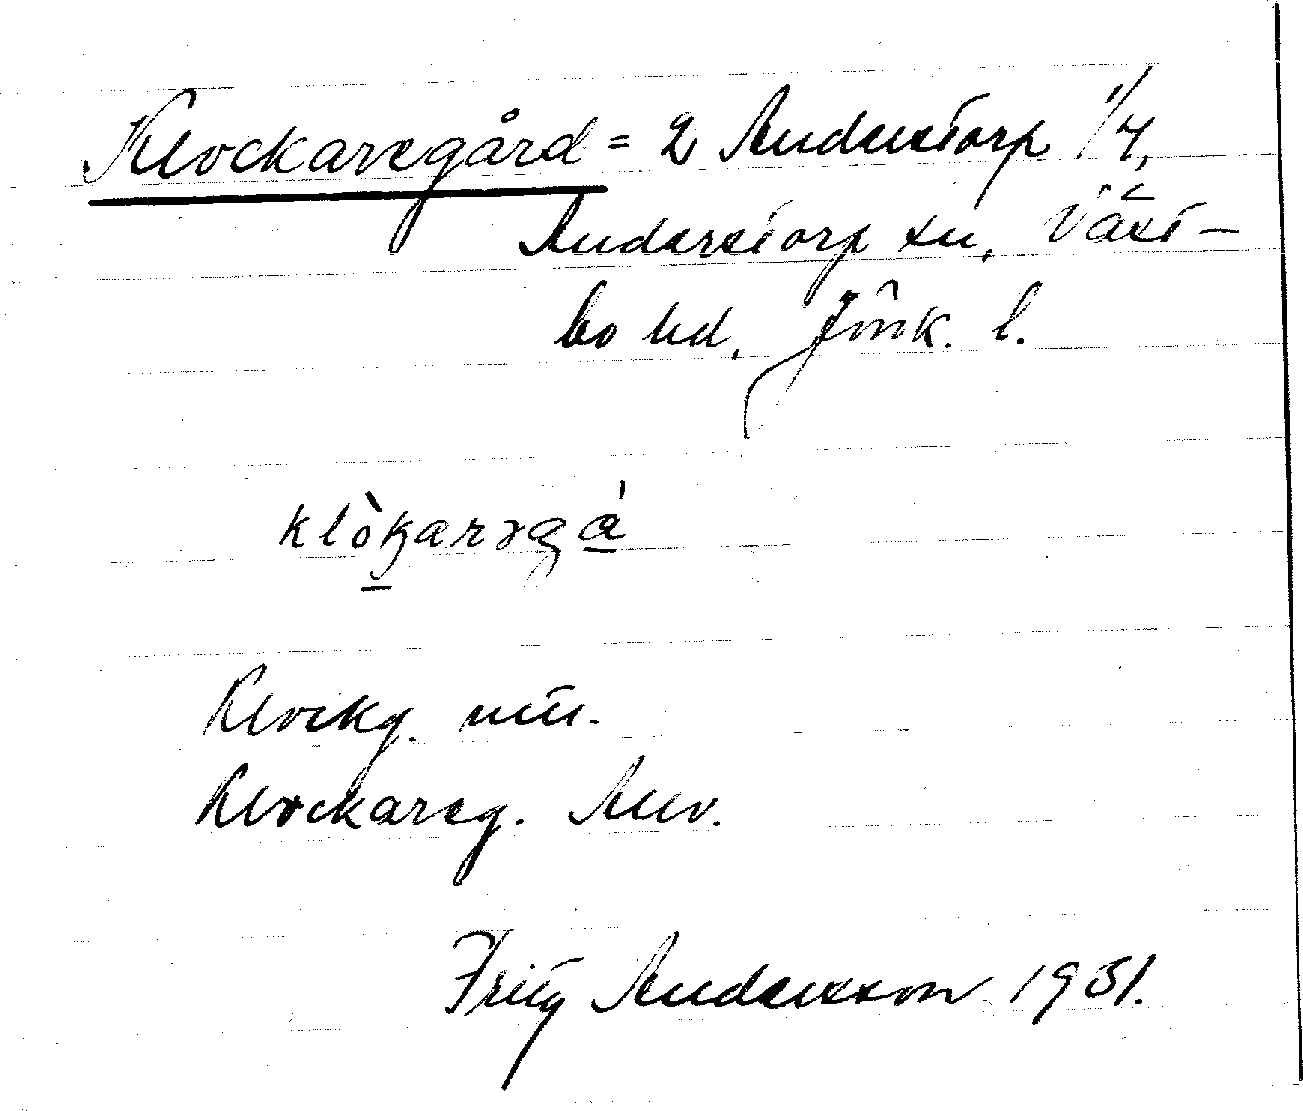 Klockaregård = 2 Anderstorp 1/4,
Anderstorp sn, Väst-
bo hd, Jönk. l.
klòkarəgá
Klockg. mtn.
Klockareg. Anv.
Fritz Andersson 1931.